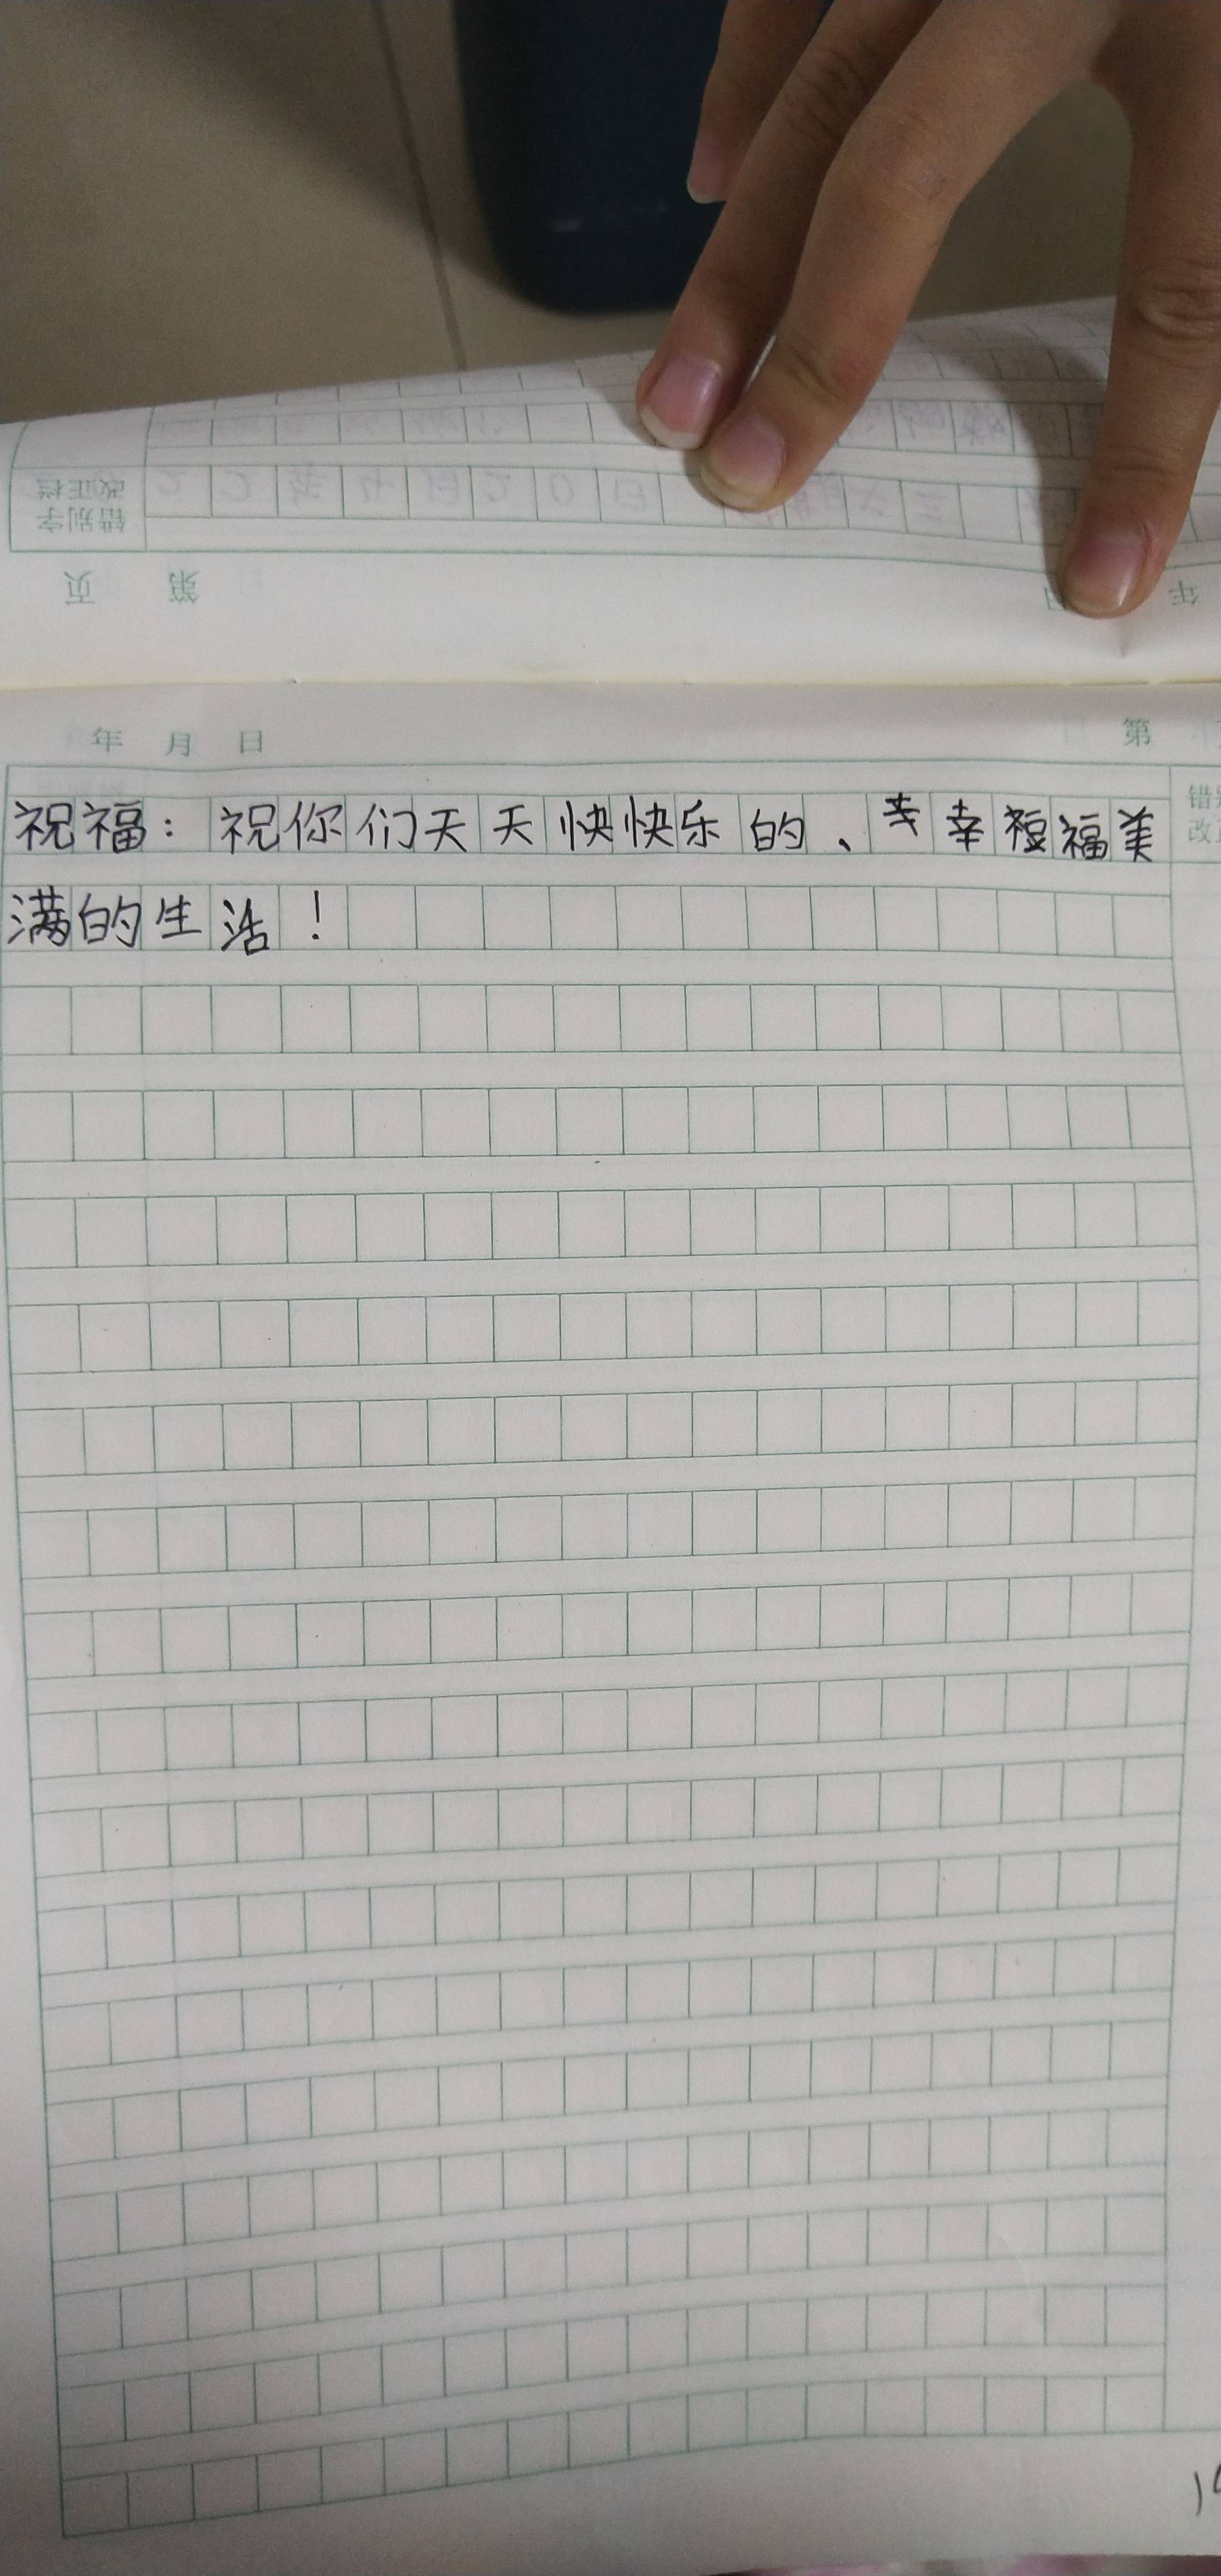 改正栏
错别字
页 第 年
年 月 日 第
祝福：祝你们天天快快乐的、幸幸福福美
满的生活！